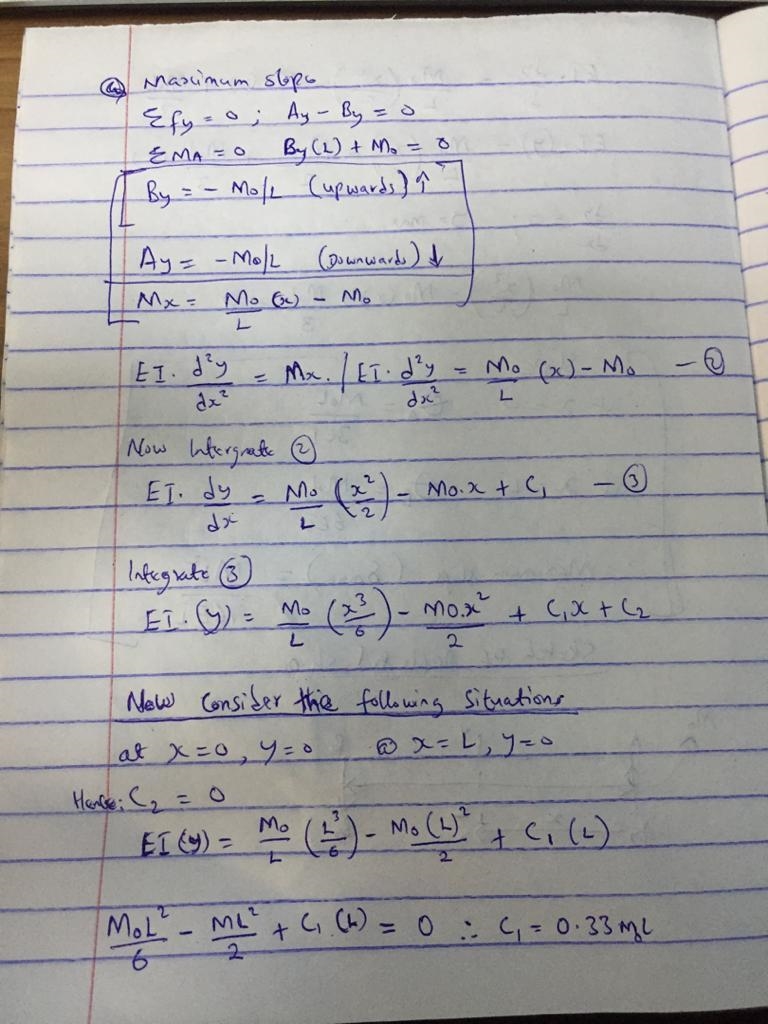 (a) Maximum slope
Σfy = 0 ; Ay - By = 0
ΣMA = 0 By (L) + Mo = 0
By = - Mo/L (upwards) ↑
Ay = - Mo/L (Downwards) ↓
Mx = Mo/L (x) - Mo
EI. d²y/dx² = Mx. / EI. d²y/dx² = Mo/L (x) - Mo - ②
Now Intergrate ②
EI. dy/dx = Mo/L (x²/2) - Mo.x + C₁ - ③
Integrate ③
EI. (y) = Mo/L (x³/6) - Mo.x²/2 + C₁x + C₂
Now Consider the following Situations
at x=0, y=0 @ x=L, y=0
Hence; C₂ = 0
EI (y) = Mo/L (L³/6) - Mo (L)²/2 + C₁ (L)
MoL²/6 - ML²/2 + C₁ (L) = 0 ∴ C₁ = 0.33 MoL